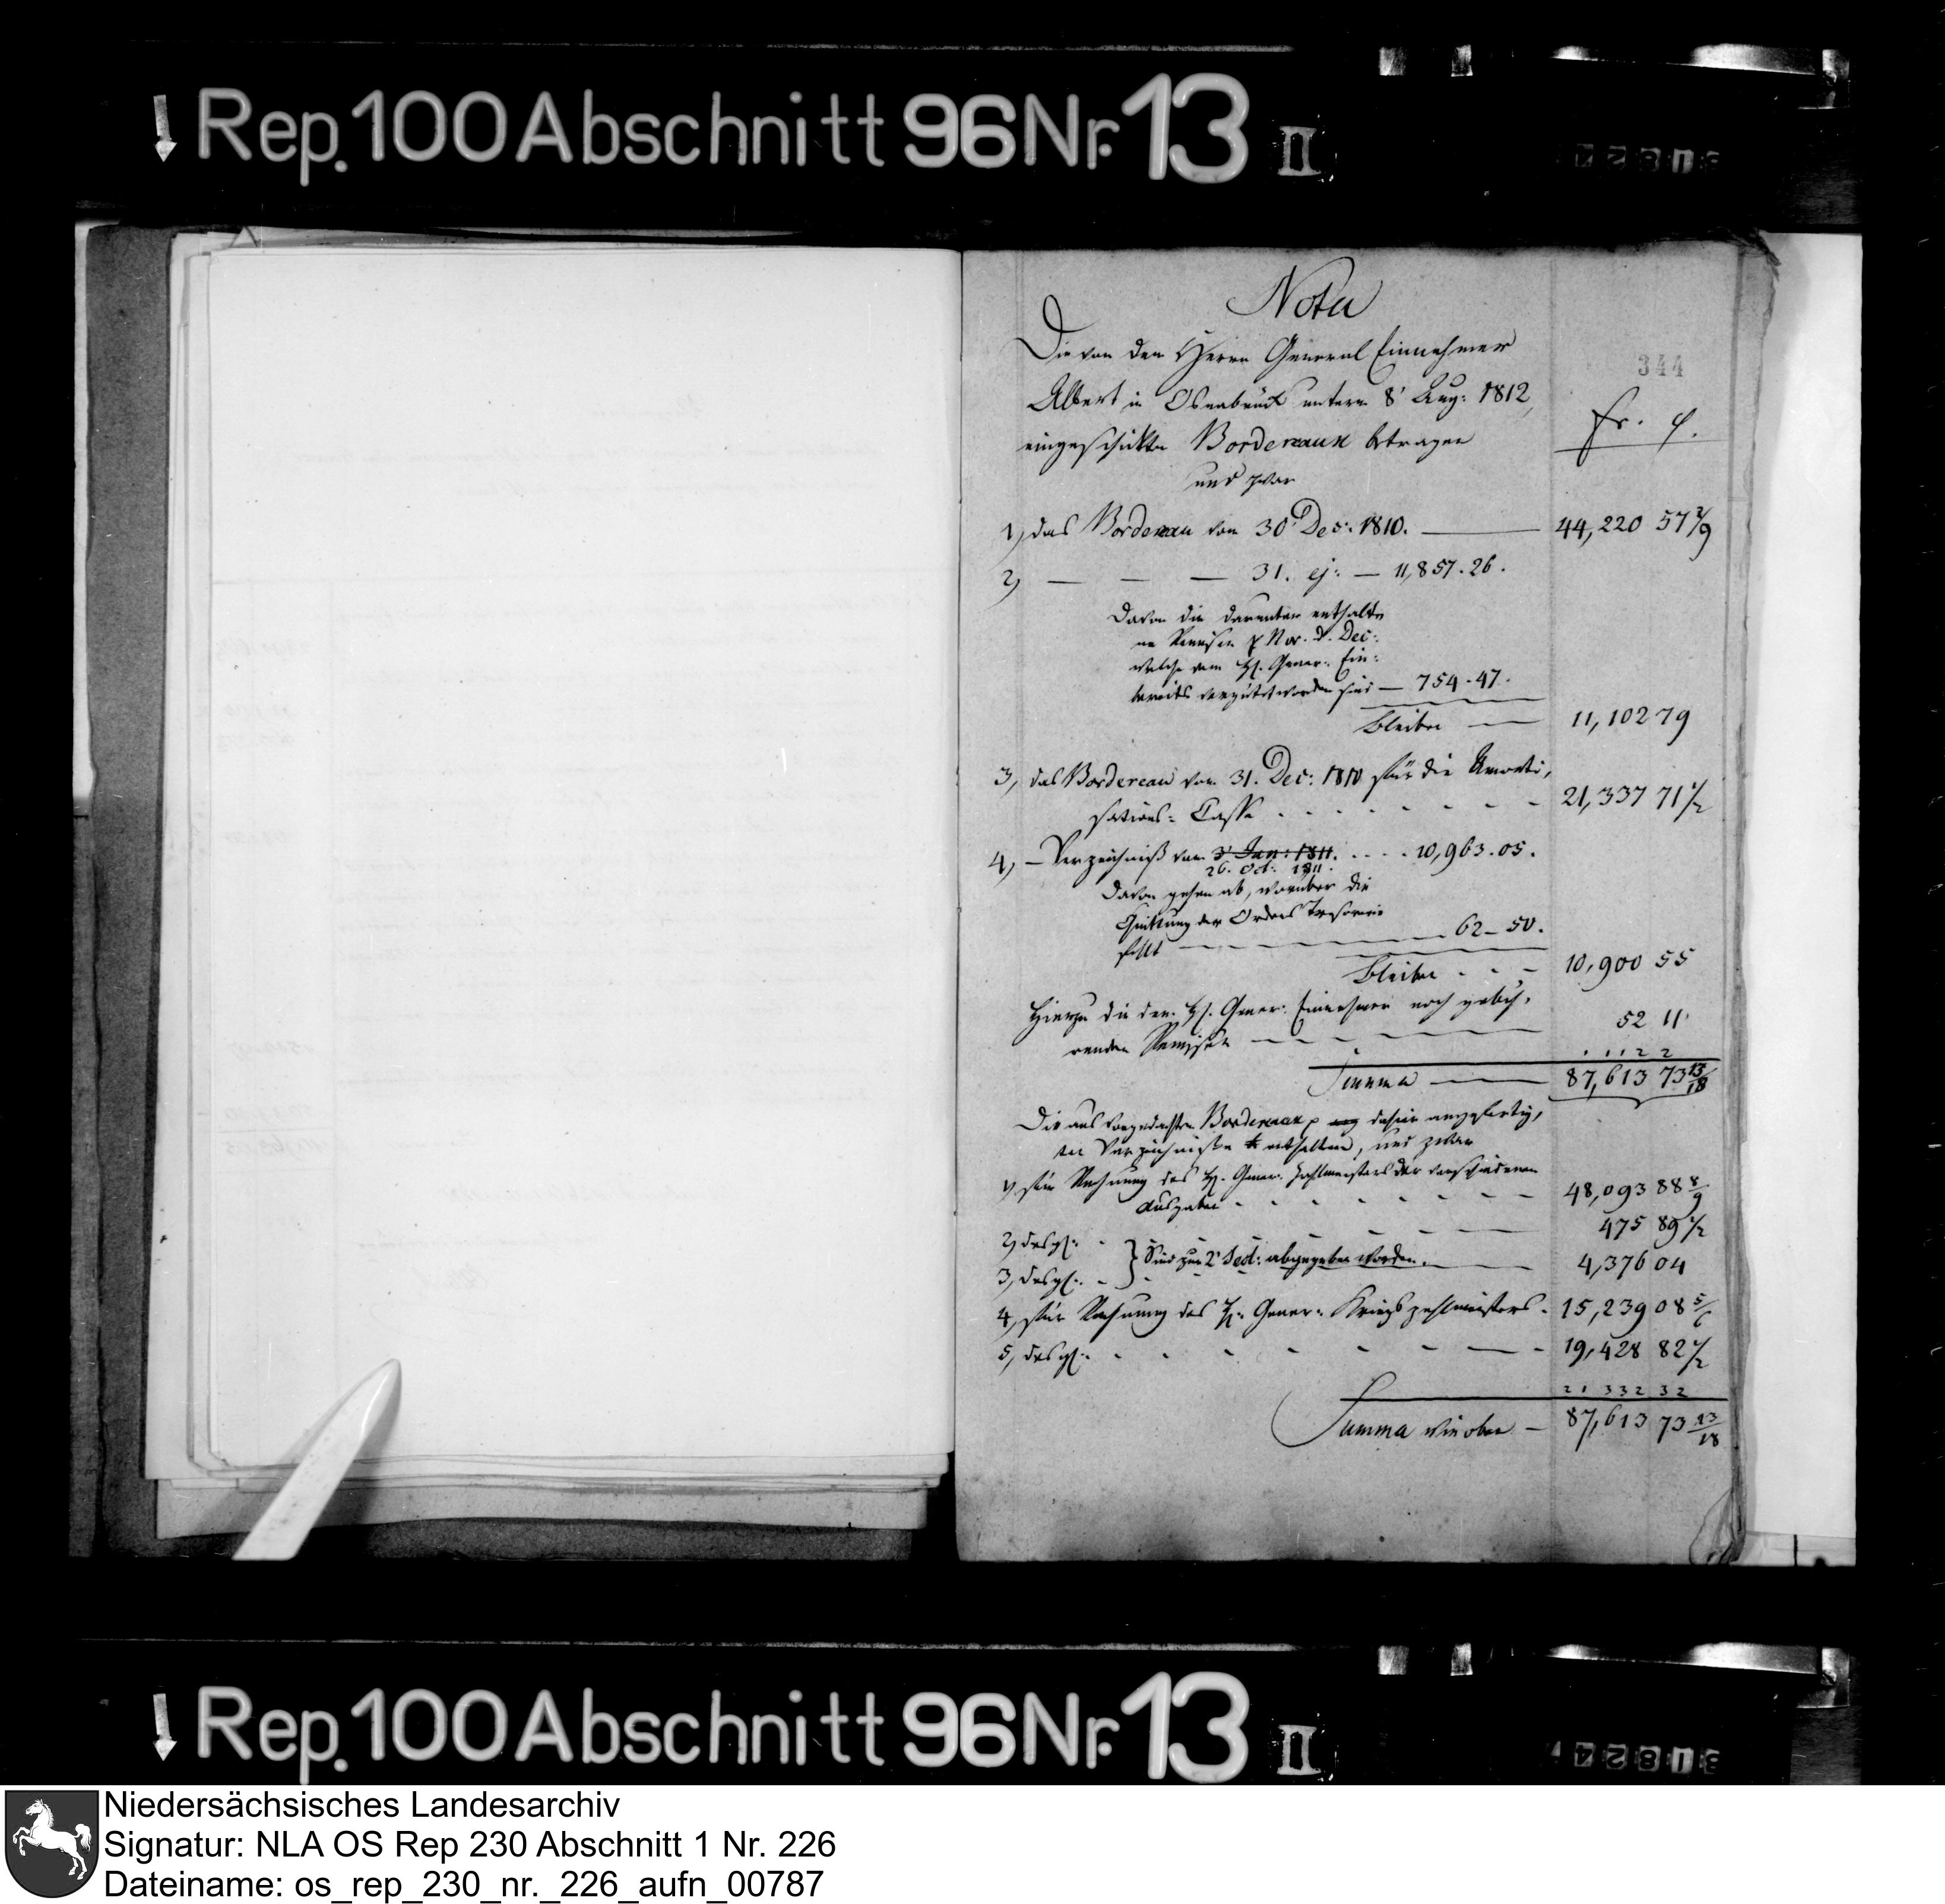 Rep. 100 Abschnitt 96 Nr. 13 II
Nota
344
Die von dem Herrn General Einnehmer
Albert in Osnabrück unterm 8' Aug: 1812,
eingeschickten Bordereaux betragen
fr. c.
und zwar
1, das Bordereau vom 30' Dec: 1810. — 44,220 57 2/9
2, — — — 31. ej: — 11,857.26.
Davon die darunter enthalte-
ne Remisen p Nov. & Dec:
welche dem H. Gener: Ein:
bereits vergütet worden sind — 754.47.
bleiben — 11,102 79
3, das Bordereau vom 31. Dec: 1810 für die Amorti,
sations: Casse - - - - 21,337 71 1/2
4, — Verzeichniß vom 3' Jan: 1811. . . . . 10,963.05.
26. Oct: 1811.
Davon gehen ab, worüber die
Quittung der Ordens Tresorerie
fehlt — 62-50.
bleiben - - - 10,900 55
Hierzu die dem H. Gener: Einnehmer noch gebüh,
renden Remisen — 52 11
1 1 1 2 2
Summa — 87,613 73 13/18
Die aus vorgedachten Bordereaux dahier angefertig,
ten Verzeichniße enthalten, und zwar
1, für Rechnung des H. Gener: Zahlmeisters der verschiedenen
Ausgaben - - - - 48,093 88 8/9
2, desgl: - 475 89 1/2
} Sind zur 2' Sect: abgegeben worden.
3, desgl: - 4,376 04
4, für Rechnung des H: Gener: Kriegszahlmeisters - 15,239 08 5/6
5, desgl: - - - - 19,428 82 1/2
2 1 3 3 2 3 2
Summa wie oben — 87,613 73 13/18
Rep. 100 Abschnitt 96 Nr. 13 II
Niedersächsisches Landesarchiv
Signatur: NLA OS Rep 230 Abschnitt 1 Nr. 226
Dateiname: os_rep_230_nr._226_aufn_00787